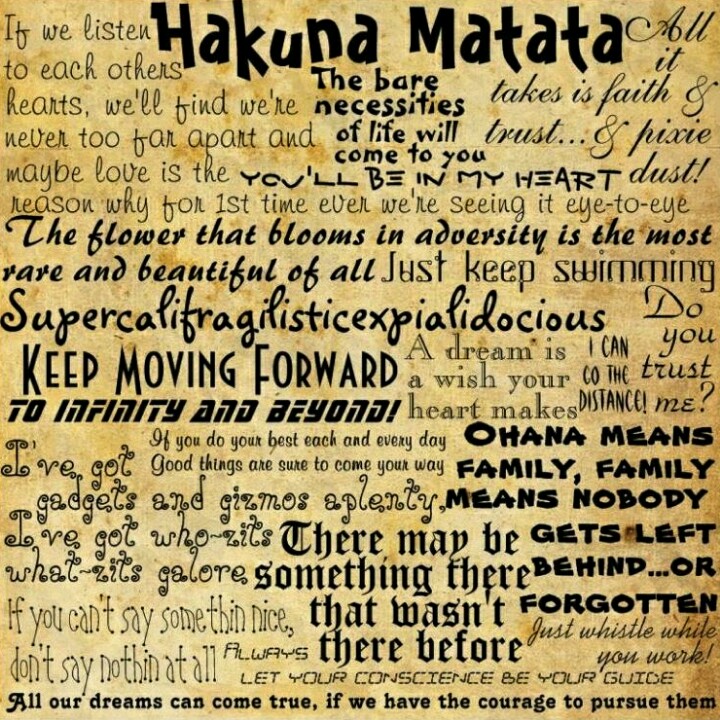 Hakuna Matata
If we listen
to each others
hearts, we'll find we're
never too far apart and
maybe love is the
reason why for 1st time ever we're seeing it eye-to-eye
The bare
necessities
of life will
come to you
All
it
takes is faith &
trust...& pixie
dust!
YOU'LL BE IN MY HEART
The flower that blooms in adversity is the most
rare and beautiful of all
Just keep swimming
Supercalifragilisticexpialidocious
Do
you
trust
me?
KEEP MOVING FORWARD
A dream is
a wish your
heart makes
I CAN
GO THE
DISTANCE!
TO INFINITY AND BEYOND!
If you do your best each and every day
Good things are sure to come your way
OHANA MEANS
FAMILY, FAMILY
MEANS NOBODY
GETS LEFT
BEHIND...OR
FORGOTTEN
I've got
gadgets and gizmos aplenty,
I've got who-zits
what-zits galore
There may be
something there
that wasn't
there before
If you can't say somethin nice,
don't say nothin at all
Just whistle while
you work!
ALWAYS
LET YOUR CONSCIENCE BE YOUR GUIDE
All our dreams can come true, if we have the courage to pursue them